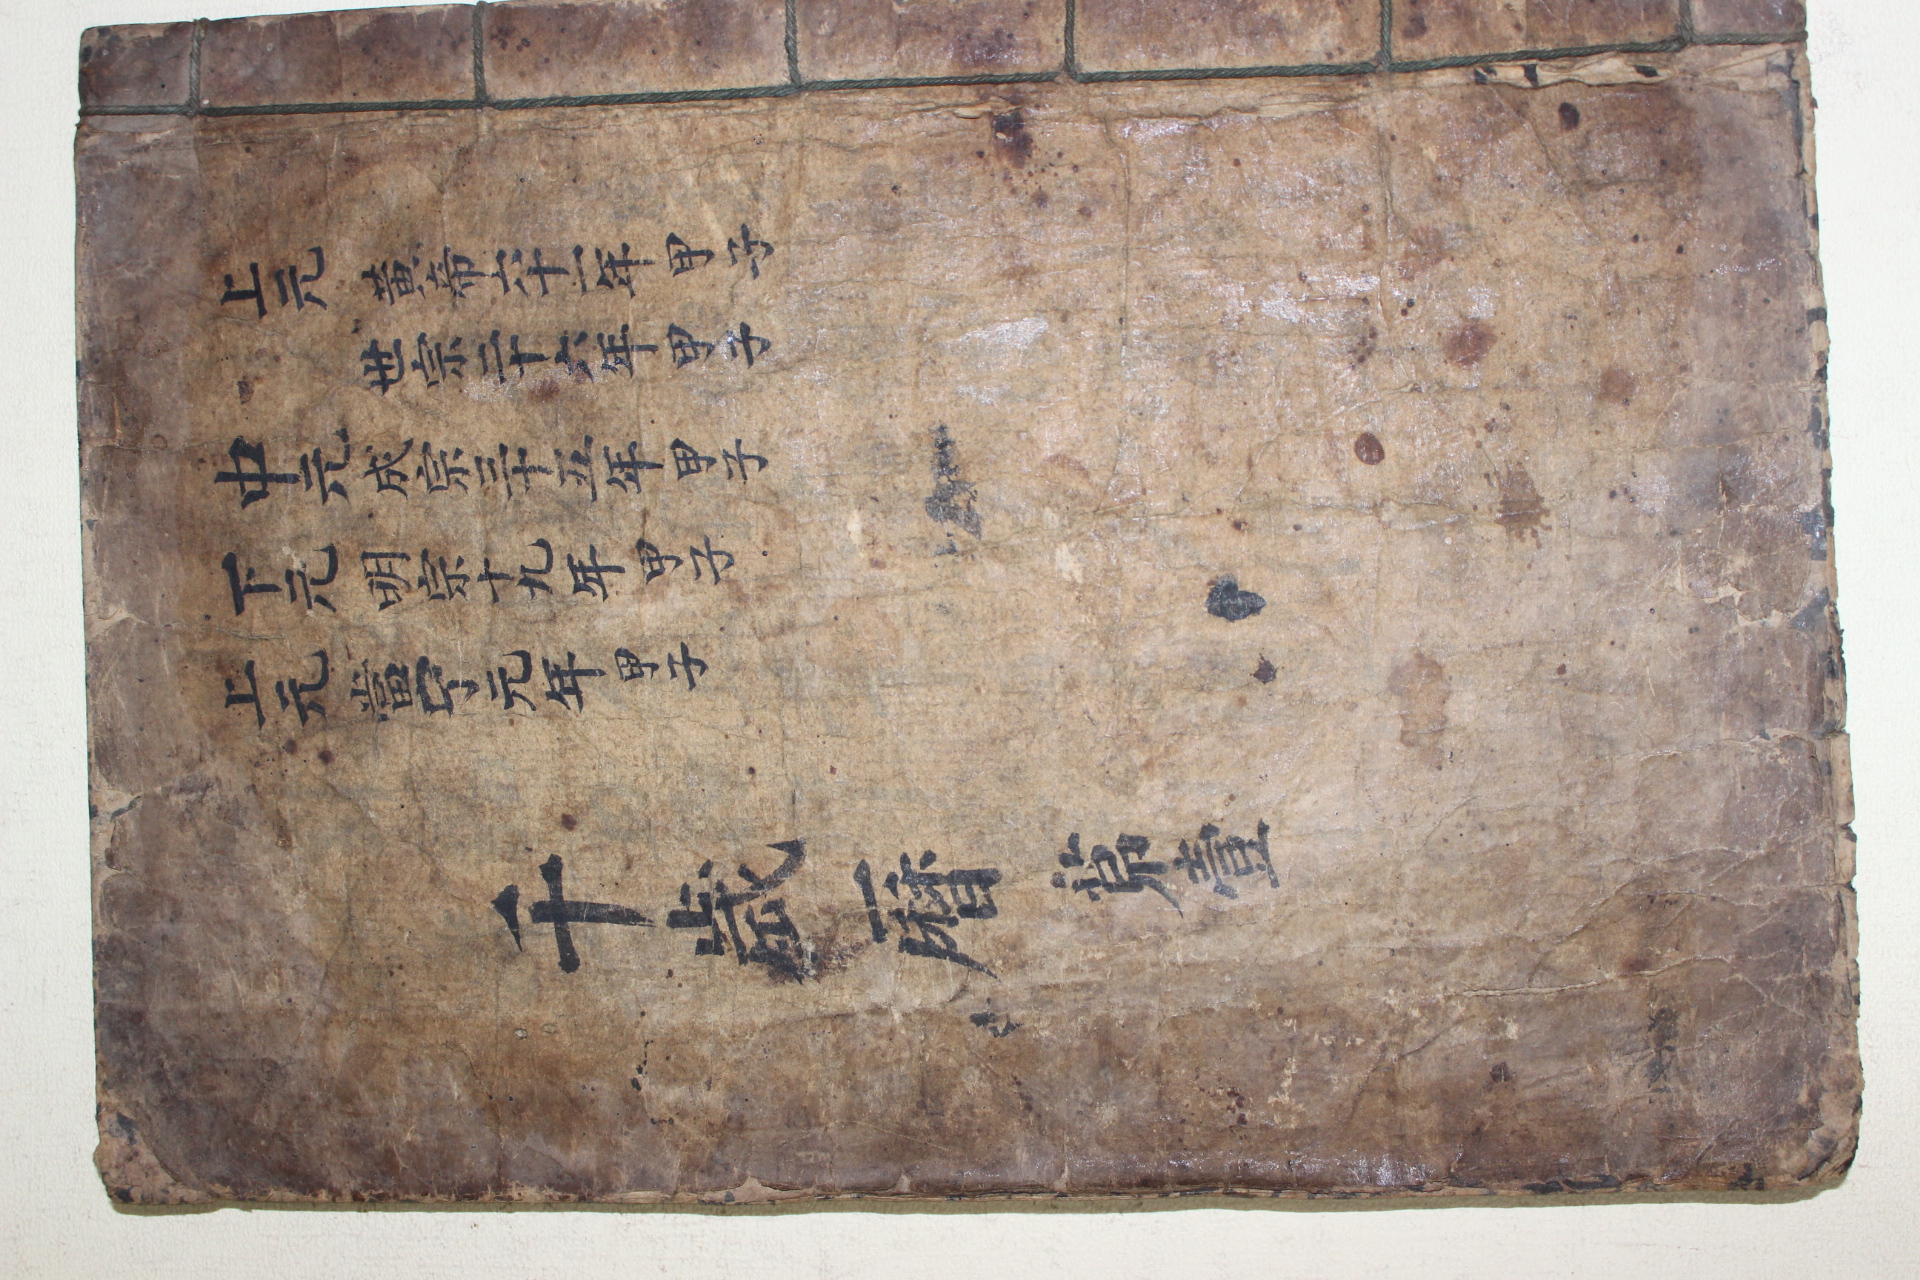 上元 黄帝六十一年甲子
世宗二十六年甲子
中元 成宗三十五年甲子
下元 明宗十九年甲子
上元 當宁元年甲子
千歲曆 壹